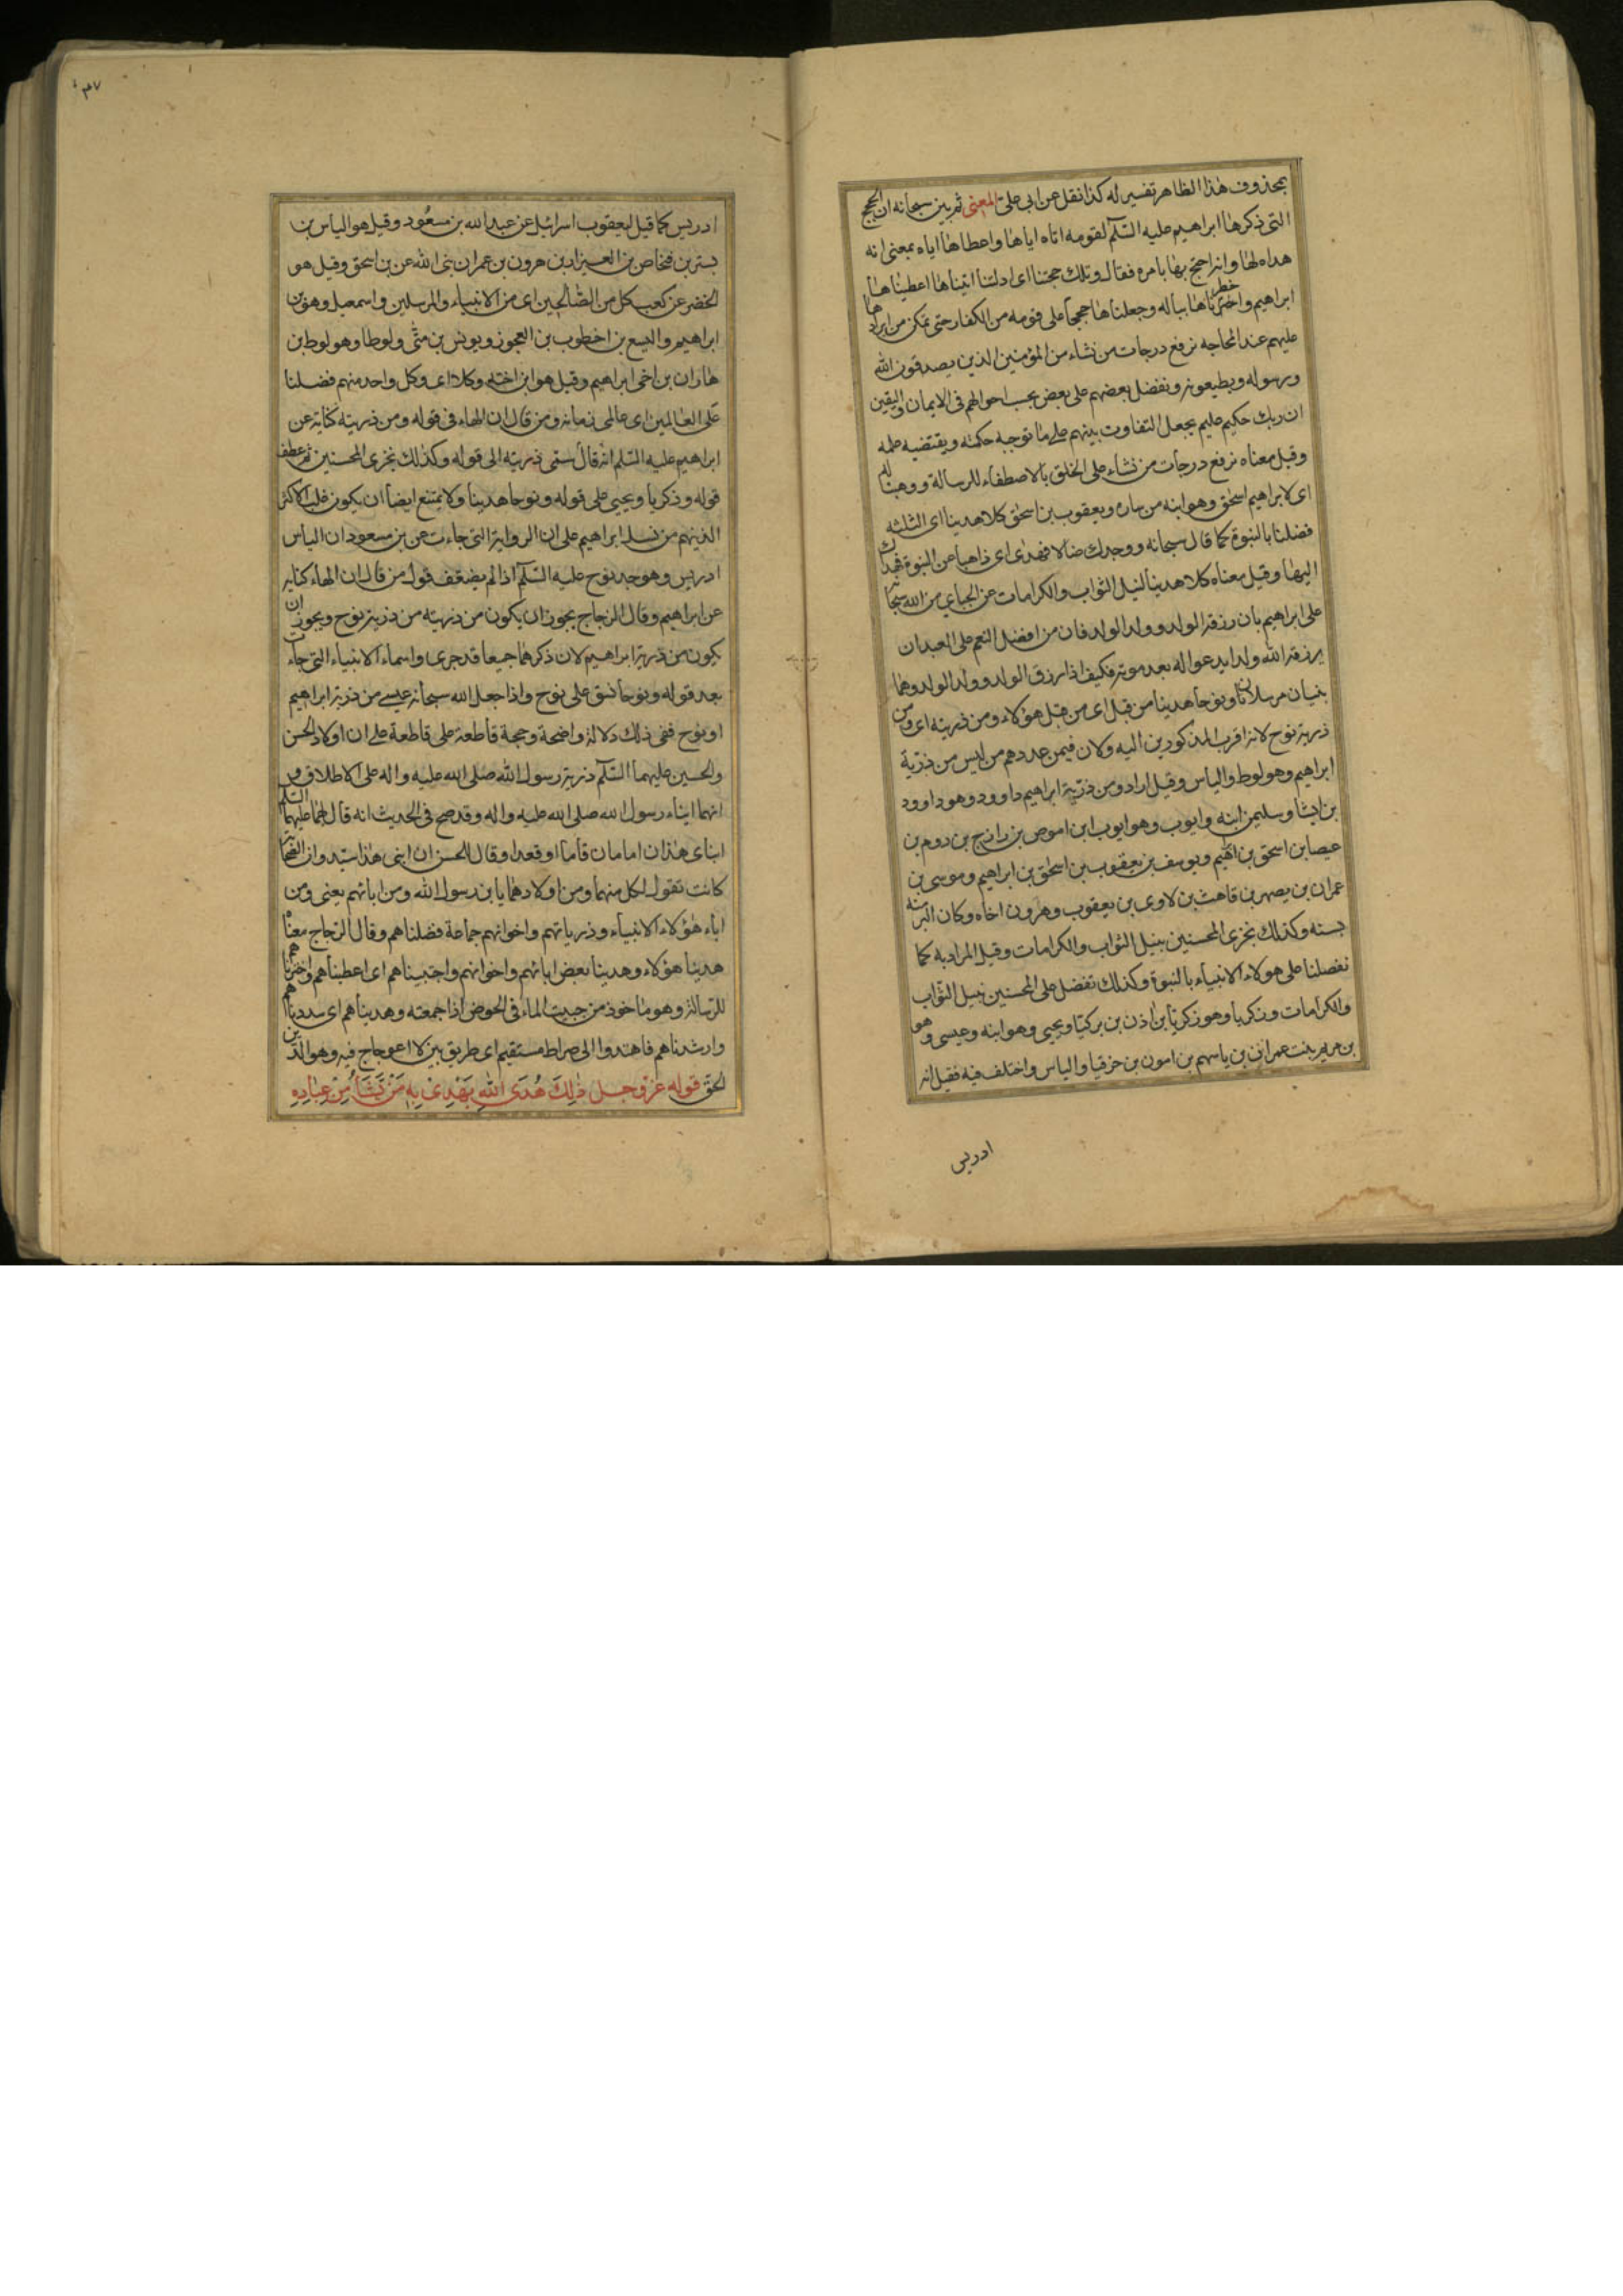 بمحذوف هذا الظاهر تفسير له كذا نقل عن ابى على المعنى ثم بين سبحانه ان الحجج
التى ذكرها ابراهيم عليه السلم لقومه اتاه اياها واعطاها اياه بمعنى انه
هداه لها وانه احتج بها بامره فقال وتلك حجتنا اى ادلتنا اتيناها اعطيناها
ابراهيم واخترناها بباله وجعلناها حججا على قومه من الكفار حتى تمكن من ايرادها
عليهم عند المحاجه نرفع درجات من نشاء من المؤمنين الذين يصدقون الله
ورسوله ويطيعونه ونفضل بعضهم على بعض بحسب احوالهم فى الايمان واليقين
ان ربك حكيم عليم يجعل التفاوت بينهم على ما توجبه حكمته ويقتضيه علمه
وقيل معناه نرفع درجات من نشاء على الخلق بالاصطفاء للرسالة ووهبنا له
اى لابراهيم اسحق وهو ابنه من ساره ويعقوب بن اسحق كلا هدينا اى الثلثه
فضلنا بالنبوة كما قال سبحانه ووجدك ضالا فهدى اى ذاهبا عن النبوة فهداك
اليها وقيل معناه كلا هدينا لنيل الثواب والكرامات عن الجباى من الله سبحانه
على ابراهيم بان رزقه الولد وولد الولد فان من افضل النعم على العبد ان
يرزقه الله ولدا يدعو اله بعد موته فكيف اذا رزق الولد وولد الولد وهما
نبيان مرسلان ونوحا هدينا من قبل اى من قبل هؤلاء ومن ذريته اى ومن
ذرية نوح لانه اقرب المذكورين اليه ولان فيمن عددهم من ليس من ذرية
ابراهيم وهو لوط والياس وقيل اراد ومن ذرية ابراهيم داوود وهو داوود
بن ايشا وسليمن ابنه وايوب وهو ايوب ابن اموص بن رازج بن روم بن
عيصا بن اسحق بن ابرهيم ويوسف بن يعقوب بن اسحق بن ابراهيم وموسى بن
عمران بن يصهر بن قاهث بن لاوى بن يعقوب وهرون اخاه وكان اكبر منه
بسنه وكذلك نجزى المحسنين بنيل الثواب والكرامات وقيل المراد به كما
تفضلنا على هولاء الانبياء بالنبوة وكذلك نتفضل على المحسنين بنيل الثواب
والكرامات وزكريا وهو زكريا بن اذن بن بركيا ويحيى وهو ابنه وعيسى وهو
بن مريم بنت عمران بن ياسهم بن امون بن حزقيا والياس واختلف فيه فقيل انه
ادريس
٣٧
ادريس كما قيل ليعقوب اسرائيل عن عبد الله بن مسعود وقيل هو الياس بن
بستر بن فنحاص بن العيزار بن هرون بن عمران نبى الله عن بن اسحق وقيل هو
الخضر عن كعب كل من الصالحين اى من الانبياء والمرسلين واسمعيل وهو بن
ابراهيم واليسع بن اخطوب بن العجوز ويونس بن متى ولوطا وهو لوط بن
هاران بن اخى ابراهيم وقيل هو ابن اخته وكلا اى وكل واحد منهم فضلنا
على العالمين اى عالمى زمانه ومن قال ان الهاء فى قوله ومن ذريته كناية عن
ابراهيم عليه السلم انه قال ستمى ذريته الى قوله وكذلك نجزى المحسنين ثم عطف
قوله وذكريا ويحيى على قوله ونوحا هدينا ولا يمتنع ايضا ان يكون غلب الاكثر
الذينهم من نسل ابراهيم على ان الرواية التى جاءت عن بن مسعود ان الياس
ادريس وهو جد نوح عليه السلم اذا لم يضعف قول من قال ان الهاء كنايه
عن ابراهيم وقال الزجاج يجوز ان يكون من ذريته من ذرية نوح ويجوز ان
يكون من ذرية ابراهيم لان ذكرهما جميعا قد جرى واسماء الانبياء التى جاءت
بعد قوله ونوحا نسق على نوح واذا جعل الله سبحانه عيسى من ذرية ابراهيم
او نوح ففى ذلك دلالة واضحة وحجة قاطعة على قاطعة على ان اولاد الحسن
والحسين عليهما السلم ذرية رسول الله صلى الله عليه واله على الاطلاق و
انهما ابناء رسول الله صلى الله عليه واله وقد صح فى الحديث انه قال لهما عليهما السلم
ابناى هذان امامان قاما او قعدا وقال للحسن ان ابنى هذا سيد وان الصحابة
كانت تقول لكل منهما ومن اولادهما يا بن رسول الله ومن ابائهم يعنى ومن
اباء هؤلاء الانبياء وذرياتهم واخوانهم جماعة فضلناهم وقال الزجاج معناه
هدينا هؤلاء وهدينا بعض ابائهم واخوانهم واجتبيناهم اى اعطيناهم واخترناهم
للرسالة وهو ماخوذ من جبيت الماء فى الحوض اذا جمعته وهديناهم اى سددناهم
وارشدناهم فاهتدوا الى صراط مستقيم اى طريق بين لا اعوجاج فيه وهو الدين
الحق قوله عز وجل ذٰلِكَ هُدَى اللّٰهِ يَهْدِىْ بِهٖ مَنْ يَّشَآءُ مِنْ عِبَادِهٖ